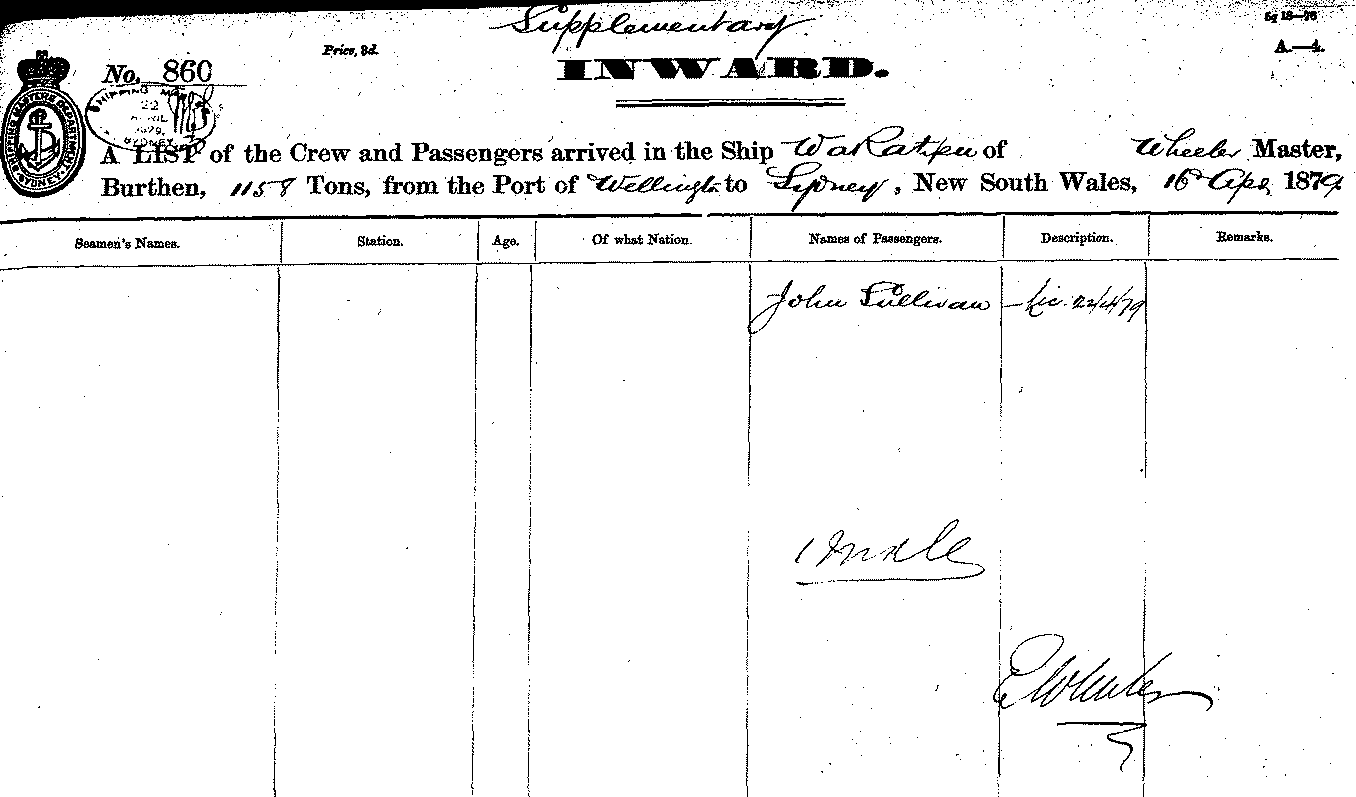 Supplementary
Sg 18—76
Price, 3d.
A.—4.
No. 860
INWARD.
SHIPPING MASTER'S DEPARTMENT
SYDNEY
SHIPPING MAS
22
APRIL
1879
SYDNEY
A LIST of the Crew and Passengers arrived in the Ship Wakatipu of Wheeler Master,
Burthen, 1158 Tons, from the Port of Wellington to Sydney, New South Wales, 16th Apl 1879.
Seamen's Names. Station. Age. Of what Nation. Names of Passengers. Description. Remarks.
John Sullivan — Lic. 22/4/79
1 Male
E Wheeler